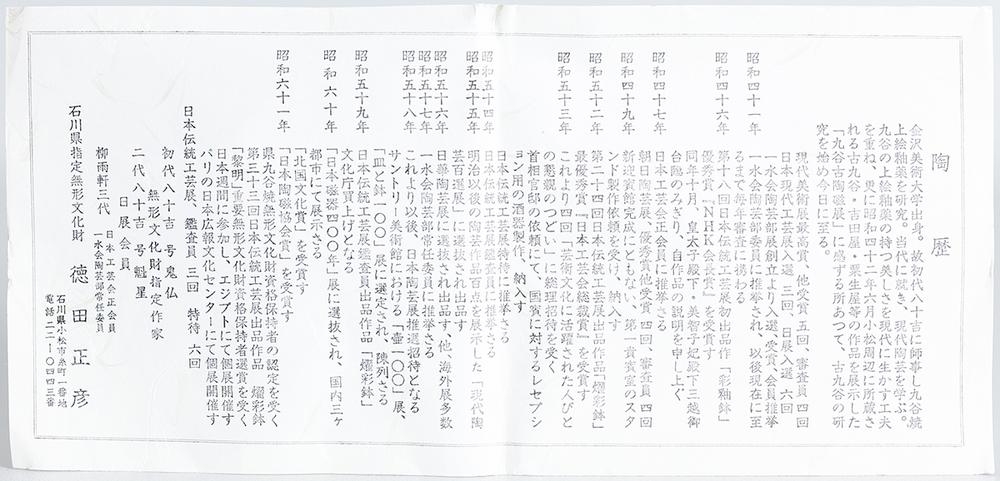 陶歴
金沢美術大学出身。故初代八十吉に師事し九谷焼
上絵釉薬を研究。当代に就き、現代陶芸を学ぶ。
九谷の上絵釉薬の持つ美しさを現代に生かす工夫
を重ね、更に昭和四十二年六月小松周辺に所蔵さ
れる古九谷・吉田屋・粟生屋等の作品を展示した
「九谷古陶磁展」に感ずる所あって、古九谷の研
究を始め今日に至る。
現代美術展最高賞、他受賞五回、審査員四回
日本現代工芸展入選 三回、日展入選 六回
昭和四十一年 一水会陶芸部展創立より入選、受賞、会員推挙
一水会陶芸部委員に推挙され、以後現在に至
るまで毎年審査に携わる
昭和四十六年 第十八回日本伝統工芸展初出品作「彩釉鉢」
優秀賞『NHK会長賞』を受賞す
同年十月、皇太子殿下・美智子妃殿下三越御
台臨のみぎり、自作品の説明を申し上ぐ
昭和四十七年 日本工芸会正会員に推挙さる
朝日陶芸展、優秀賞他受賞 四回、審査員 四回
昭和四十九年 新迎賓館完成にともない、第一貴賓室のスタ
ンド製作依頼を受け、納入す
昭和五十二年 第二十四回日本伝統工芸展出品作品「燿彩鉢」
最優秀賞『日本工芸会総裁賞』を受賞す
これより四回「芸術文化に活躍された人びと
の懇親のつどい」に総理招待を受く
昭和五十三年 首相官邸の依頼にて、国賓に対するレセプシ
ョン用の酒器製作、納入す
昭和五十四年 日本伝統工芸展特待に推挙さる
昭和五十五年 日本伝統工芸展鑑査員に推挙さる
明治以後の陶芸作品百点を展示した「現代陶
芸百選展」に選抜され出品す
昭和五十六年 日華陶芸展に選抜され出品す、他、海外展多数
昭和五十七年 一水会陶芸部常任委員に推挙さる
昭和五十八年 これより以後、日本陶芸展推選招待となる
サントリー美術館における「壷一〇〇」展、
「皿と鉢一〇〇」展に選定され、陳列さる
昭和五十九年 日本伝統工芸展鑑査員出品作品「燿彩鉢」
文化庁買上げとなる
昭和六十年 「日本磁器四〇〇年」展に選抜され、国内三ヶ
都市にて展示さる
「北国文化賞」を受賞す
「日本陶磁協会賞」を受賞す
昭和六十一年 県九谷焼無形文化財資格保持者の認定を受く
第三十三回日本伝統工芸展出品作品 燿彩鉢
「黎明」重要無形文化財資格保持者選賞を受く
日本週間に参加し、エジプトにて個展開催す
パリの日本広報文化センターにて個展開催す
日本伝統工芸展、鑑査員 三回 特待 六回
初代八十吉 号 鬼仏
無形文化財指定作家
二代八十吉 号 魁星
日展会員
柳雨軒三代 日本工芸会正会員
一水会陶芸部常任委員
石川県指定無形文化財 徳田正彦
石川県小松市糸町一番地
電話二二−〇四四三番